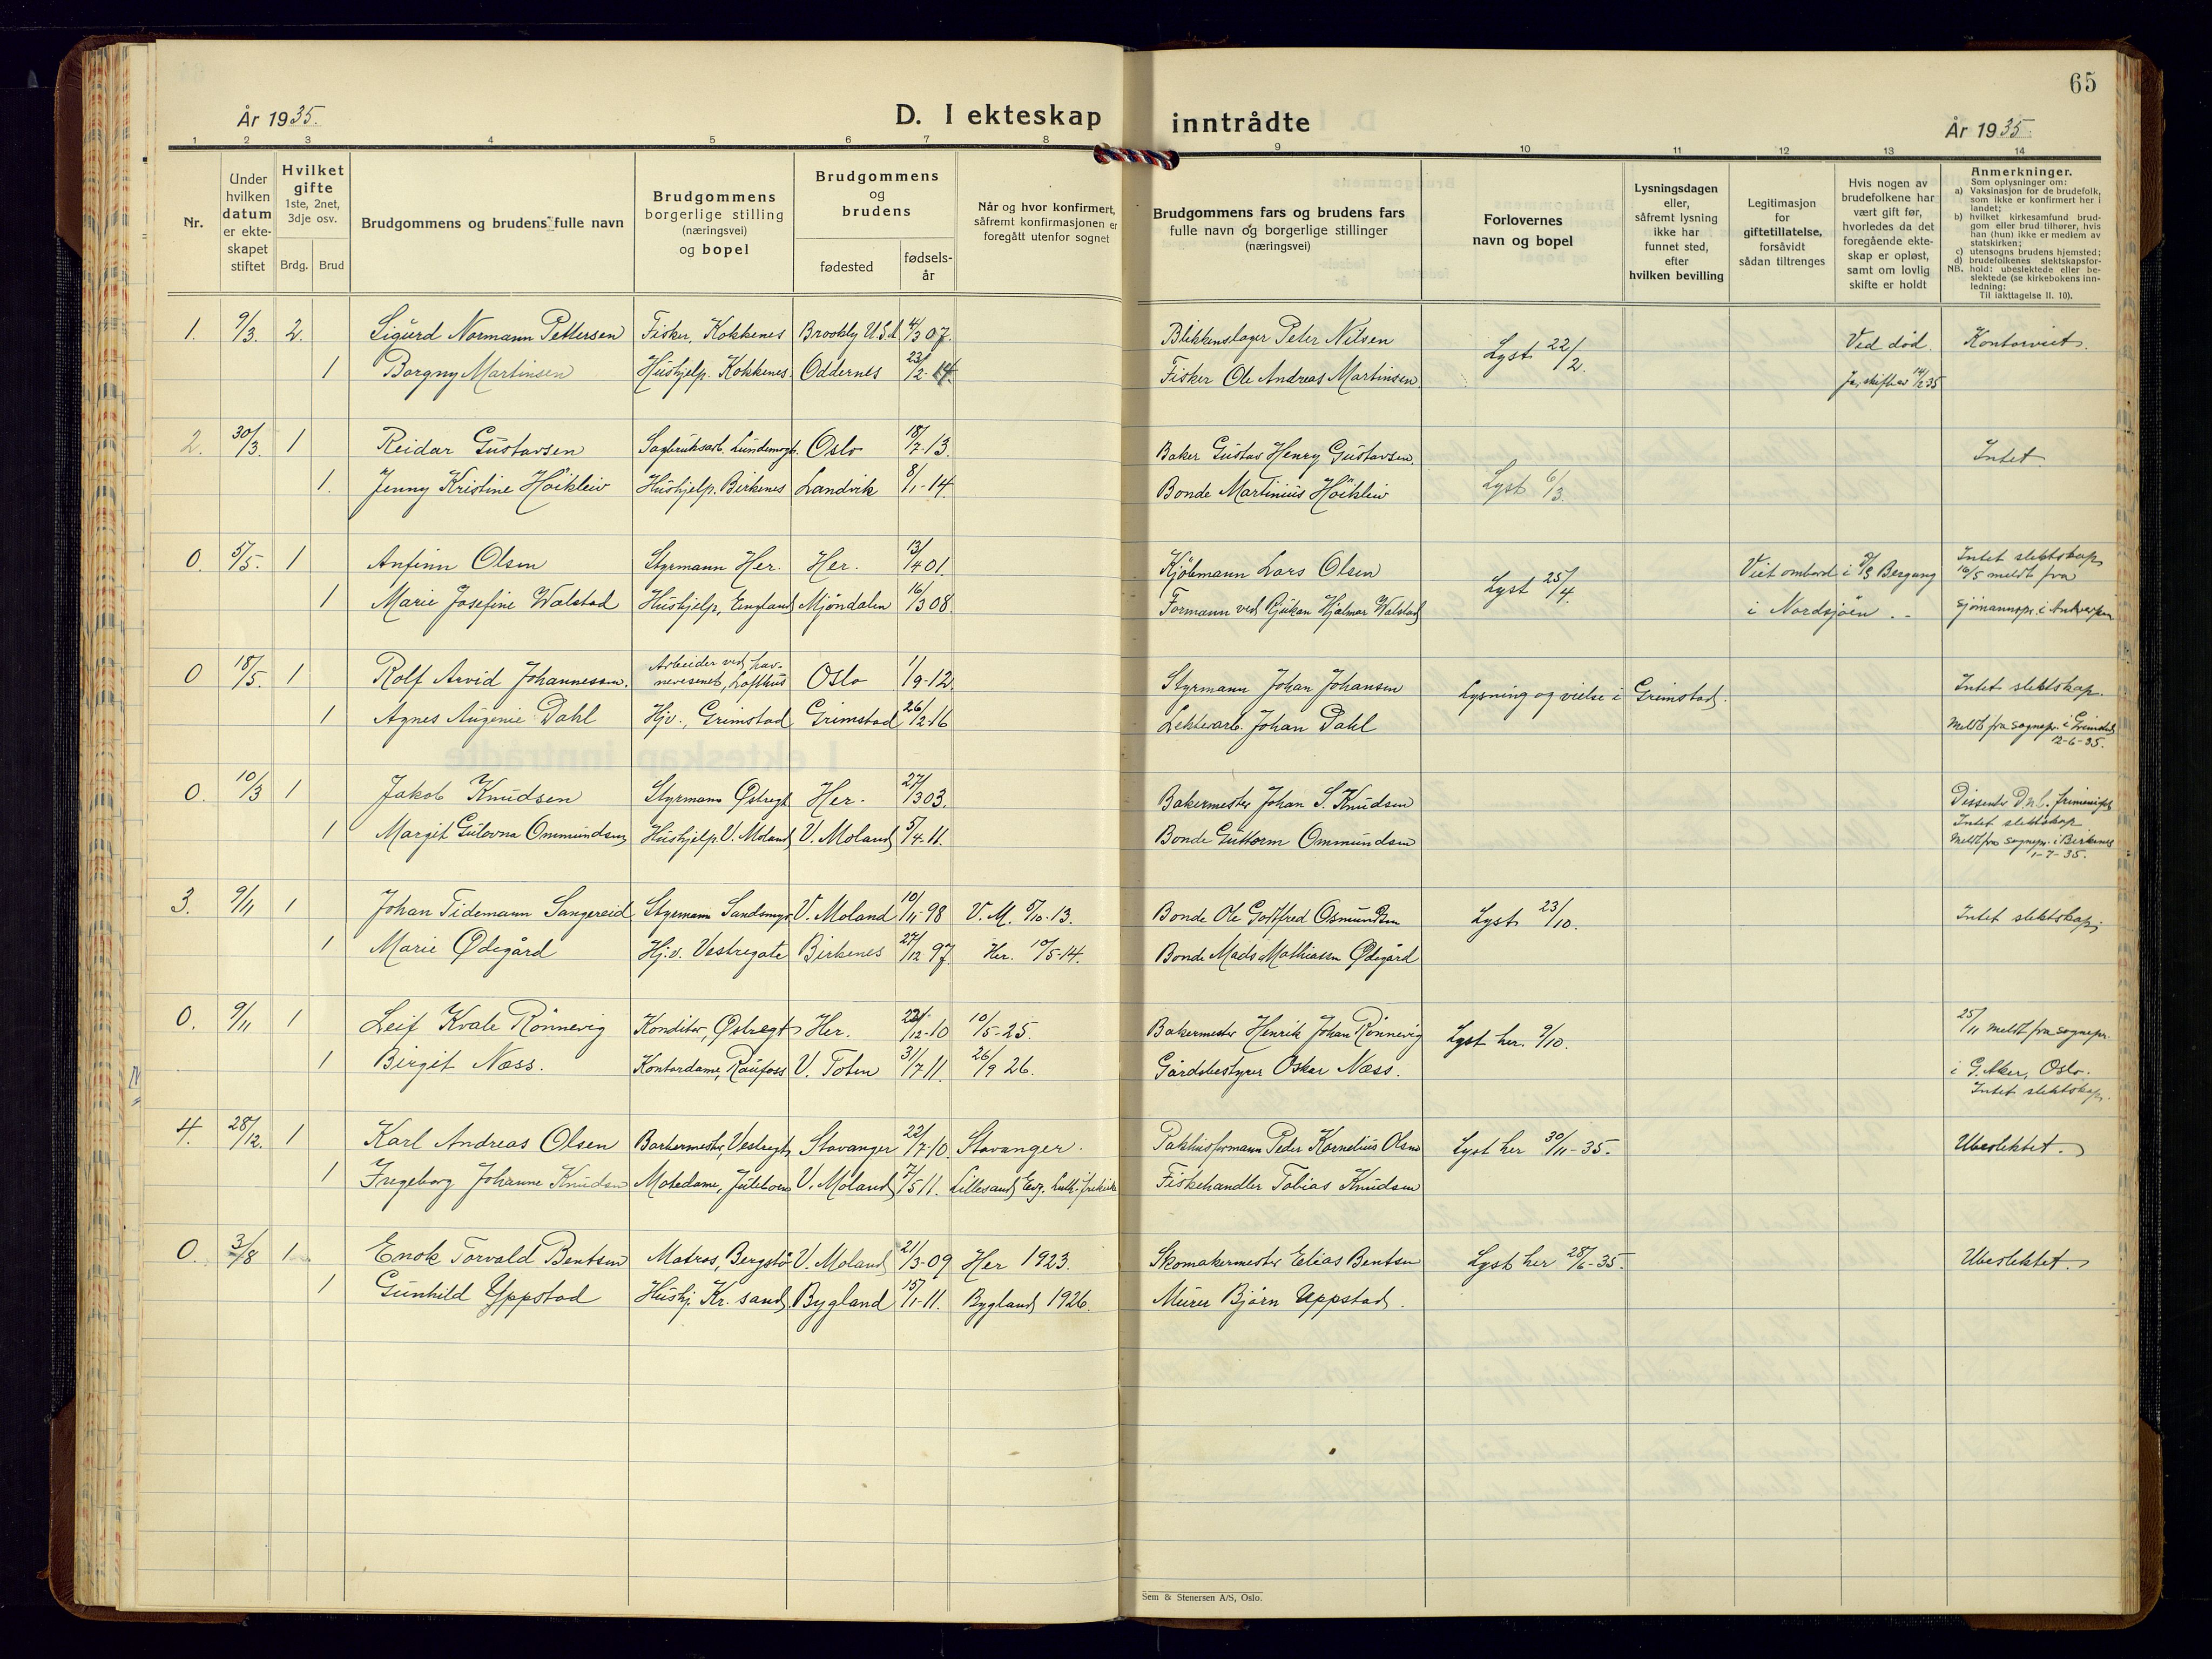 65
År 1935.
D. I ekteskap inntrådte
År 1935.
1 2 3 4 5 6 7 8 9 10 11 12 13 14
Nr.
Under hvilken datum er ekteskapet stiftet
Hvilket gifte 1ste, 2net, 3dje osv.
Brdg. Brud
Brudgommens og brudens fulle navn
Brudgommens borgerlige stilling (næringsvei) og bopel
Brudgommens og brudens
fødested
fødselsår
Når og hvor konfirmert, såfremt konfirmasjonen er foregått utenfor sognet
Brudgommens fars og brudens fars fulle navn og borgerlige stillinger (næringsvei)
Forlovernes navn og bopel
Lysningsdagen eller, såfremt lysning ikke har funnet sted, efter hvilken bevilling
Legitimasjon for giftetillatelse, forsåvidt sådan tiltrenges
Hvis nogen av brudefolkene har vært gift før, hvorledes da det foregående ekteskap er opløst, samt om lovlig skifte er holdt
Anmerkninger.
Som oplysninger om:
a) Vaksinasjon for de brudefolk, som ikke er konfirmert her i landet;
b) hvilket kirkesamfund brudgom eller brud tilhører, hvis han (hun) ikke er medlem av statskirken;
c) utensogns brudens hjemsted;
d) brudefolkenes slektskapsforhold: ubeslektede eller beslektede (se kirkebokens innledning:
NB. Til iakttagelse II. 10).
1. 9/3. 2. Sigurd Normann Pettersen Fisker, Kokkenes Brookly U.S.A. 4/3 07. Blikkenslager Peter Nilsen Lyst 22/2. Ved død. Kontorviet.
1 Borgny Martinsen Hushjelp. Kokkenes. Oddernes 23/2-14. Fisker Ole Andreas Martinsen Ja, skifteat 14/2 35
2. 30/3. 1 Reidar Gustavsen Sagbruksarb. Lundemogt. Oslo 18/7-13. Baker Gustav Henry Gustavsen. Lyst 6/3. Intet
1. Jenny Kristine Höikleiv Hushjelp. Birkenes Landvik 8/1-14. Bonde Martinius Höikleiv
0. 5/5. 1 Anfinn Olsen Styrmann Her. Her. 13/4 01. Kjöbmann Lars Olsen Lyst 25/4. Viet ombord i D/S Bergang Intet slektskap 16/5 meldt fra
1 Marie Josefine Walstad Hushjelp, England Mjöndalen 16/3 08. Formann ved Rjukan Hjalmar Walstad i Nordsjöen. - Sjömannspr. i Antwerpen
0 18/5. 1 Rolf Arvid Johannessen. Arbeider ved havnevesenet, Lofthus Oslo 1/9-12. Styrmann Johan Johansen Lysning og vielse i Grimstad. Intet slektskap.
1 Agnes Augenie Dahl Hjv., Grimstad Grimstad 26/12-16 Lektearb. Johan Dahl Meldt fra sognepr. i Grimstad 12-6-35.
0. 10/3 1 Jakob Knudsen Styrmann Østregt Her. 27/3 03. Bakermester Johan S. Knudsen Dissenter D.n.l. frimenigh
1 Margit Gulovna Ommundsen Hushjelp. V. Moland V. Moland 5/4-11. Bonde Guttorm Ommundsen Intet slektskap Meldt fra sognepr. i Birkenes 1-7-35.
3. 9/11 1 Johan Tidemann Sangereid Styrmann Sandsmyr V. Moland 10/11-98 V. M. 5/10-13. Bonde Ole Gottfred Osmundsen Lyst 23/10. Intet slektskap;
1 Marie Ødegård Hj.v. Vestregate Birkenes 27/12 97. Her. 10/5-14. Bonde Mads Mathiassen Ødegård
0. 9/11 1 Leif Kvale Rönnevig Konditor, Østregt Her. 22/12-10 10/5-25. Bakermester Henrik Johan Rönnevig Lyst her. 9/10. 25/11 meldt fra sognepr.
1 Birgit Næss. Kontordame, Raufoss V. Toten 31/7 11. 26/9 26. Gårdsbestyrer Oskar Næss. i G. Aker, Oslo. Intet slektskap.
4. 28/12. 1 Karl Andreas Olsen Barbermester, Vestregt. Stavanger 22/7-10. Stavanger. Pakhusformann Peder Kornelius Olsen Lyst her 30/11-35. Ubeslektet.
1 Ingeborg Johanne Knudsen Motedame, V. Moland 7/5 11. Lillesand Evg. Luth. frikirke Fiskehandler Tobias Knudsen
0. 3/8 1 Enok Torvald Bentsen Matros, Bergstö V. Moland 21/3-09 Her 1923. Skomakermester Elias Bentsen Lyst her 28/6-35. Ubeslektet.
1 Gunhild Yppstad Hushj. Kr. sand. Bygland 15/1-11. Bygland 1926. Murer Bjørn Uppstad.
Sem & Stenersen A/S, Oslo.